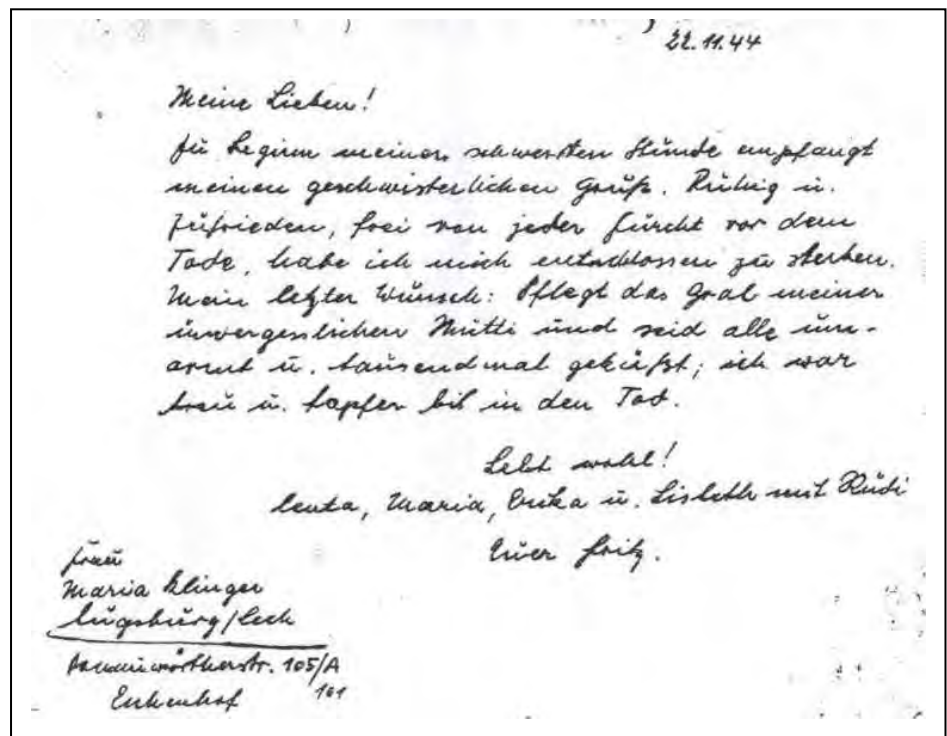 22.11.44
Meine Lieben!
Zu Beginn meiner schwersten Stunde empfangt
meinen geschwisterlichen Gruß. Ruhig u.
zufrieden, frei von jeder Furcht vor dem
Tode, habe ich mich entschlossen zu sterben.
Mein letzter Wunsch: Pflegt das Grab meiner
unvergesslichen Mutti und seid alle um-
armt u. tausendmal geküßt; ich war
treu u. tapfer bis in den Tod.
Lebt wohl!
Maria, Erika u. Lisbeth mit Rudi
Euer Fritz.
Frau
Maria Klinger
Augsburg/Lech
Donauwörtherstr. 105/A
101